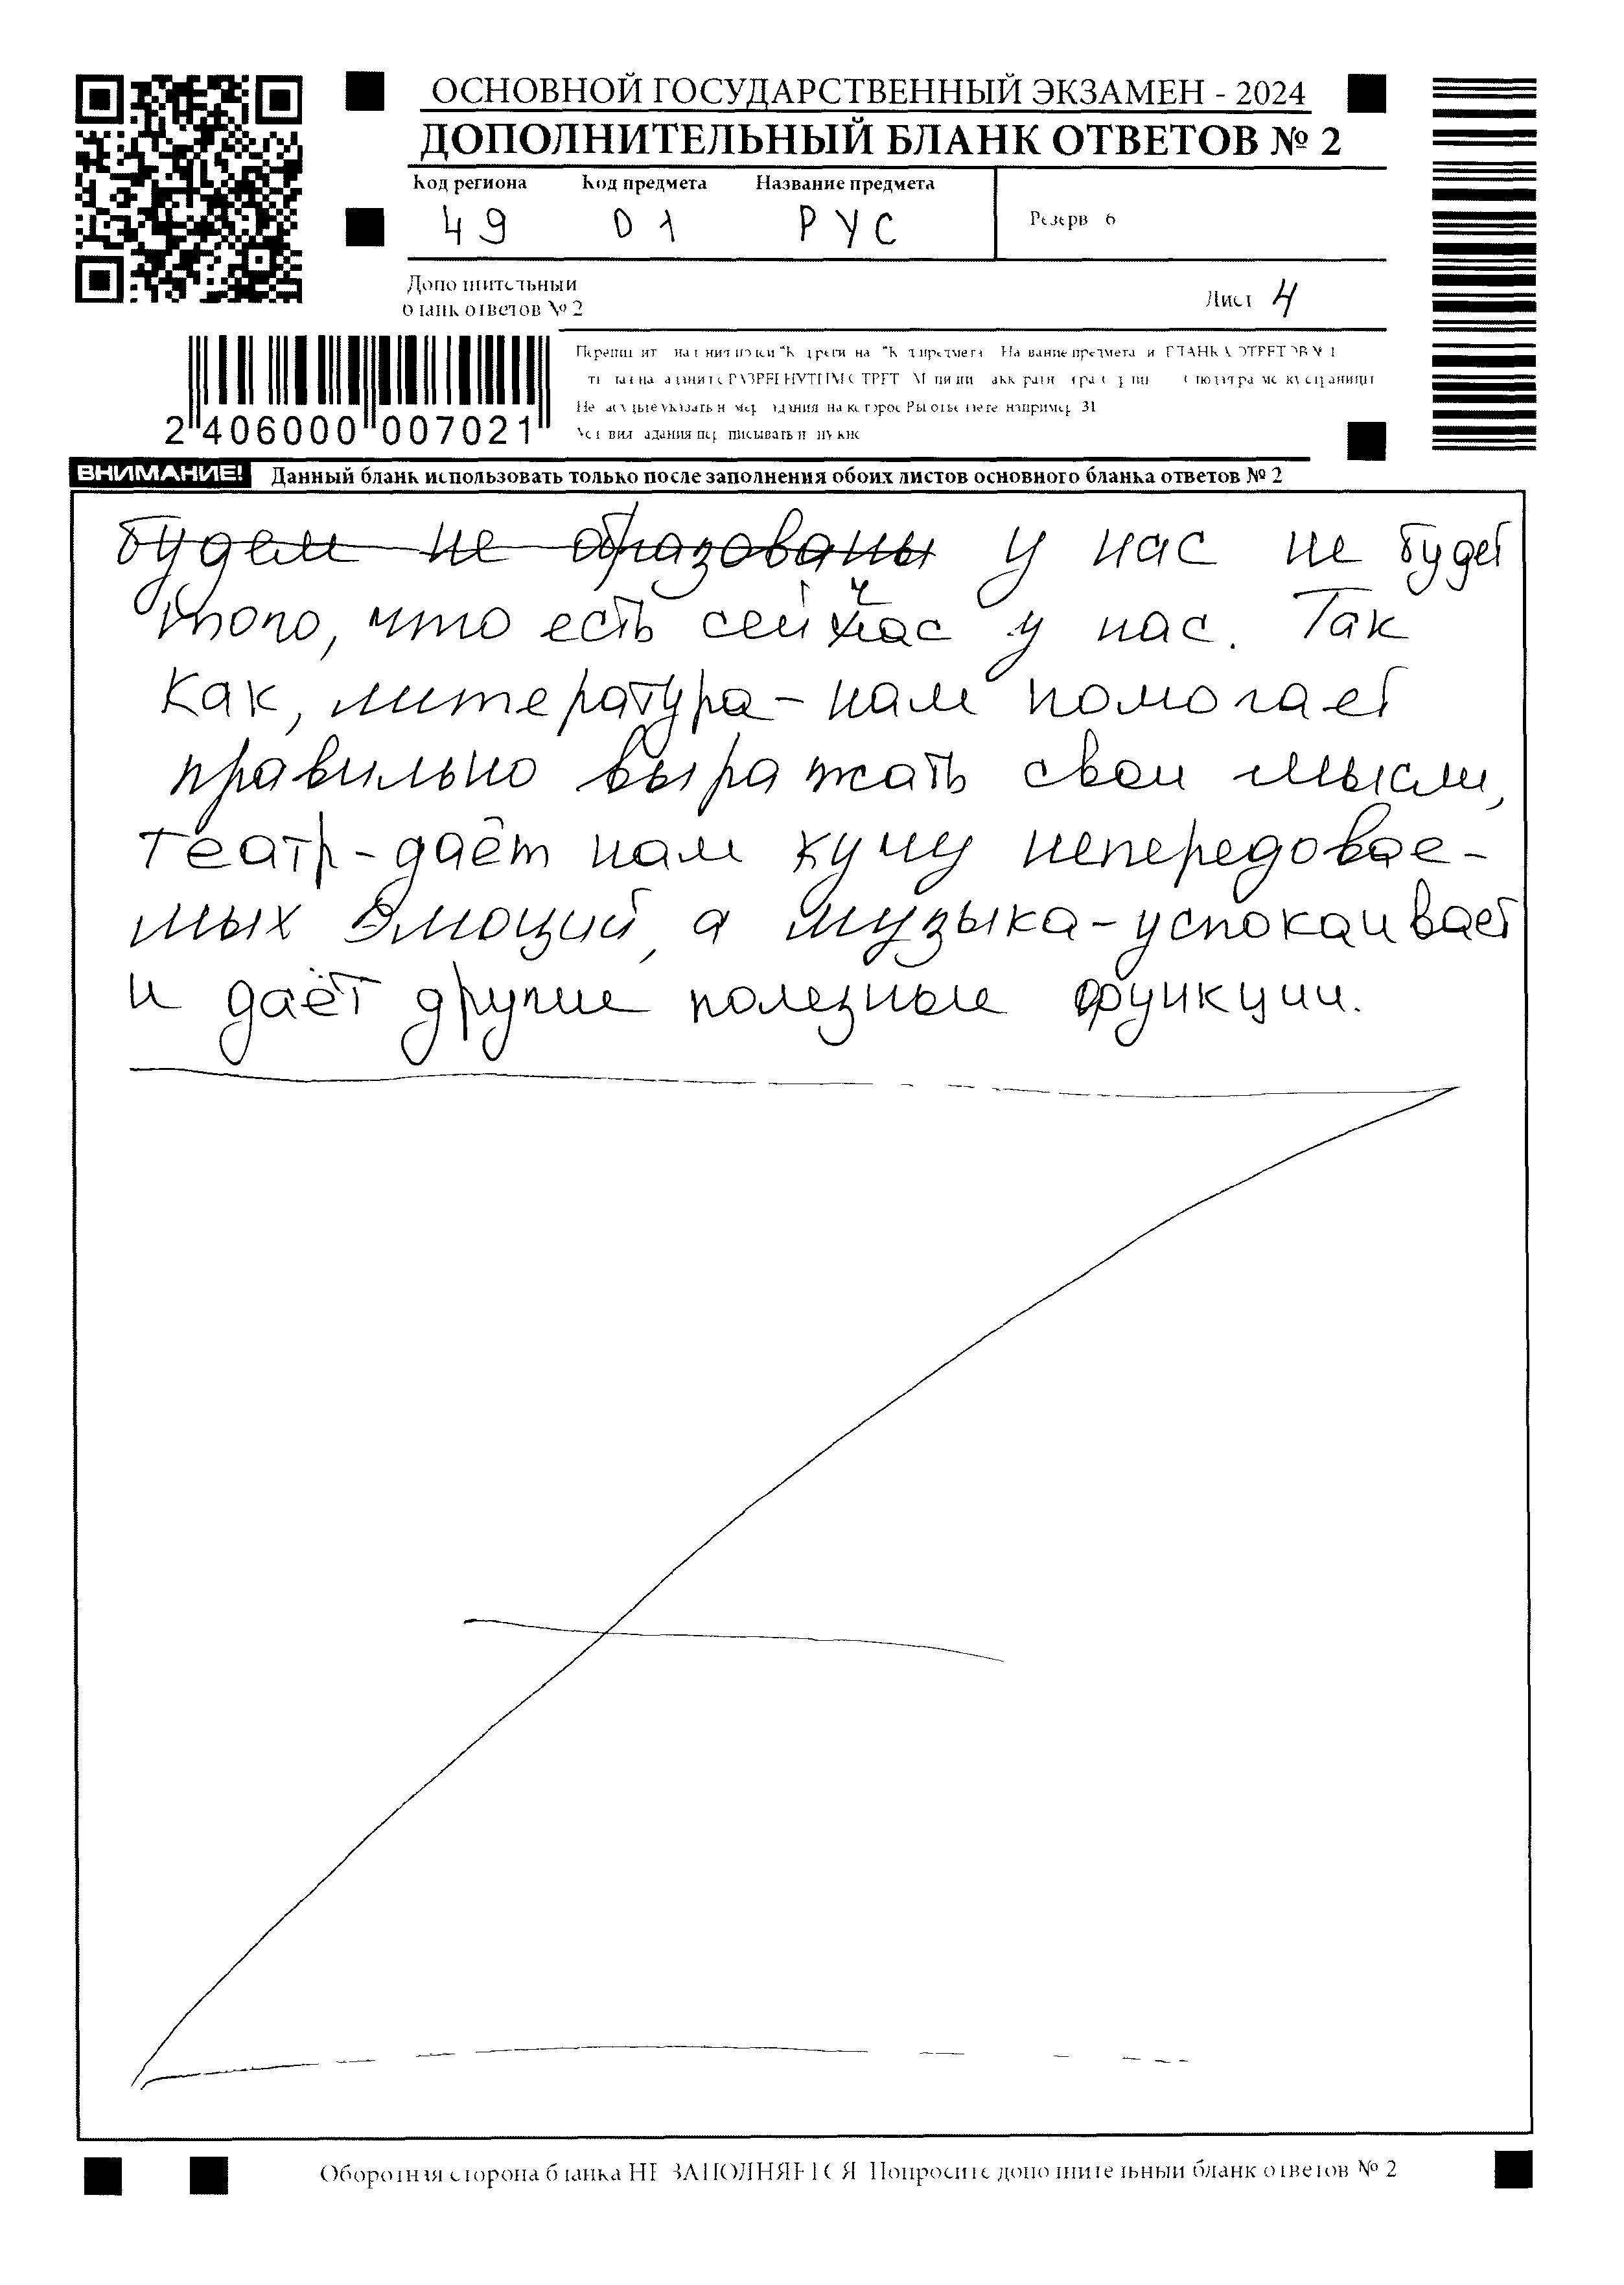 ОСНОВНОЙ ГОСУДАРСТВЕННЫЙ ЭКЗАМЕН - 2024
ДОПОЛНИТЕЛЬНЫЙ БЛАНК ОТВЕТОВ № 2
Код региона Код предмета Название предмета
49 01 РУС
Резерв 6
Дополнительный
бланк ответов № 2
Лист 4
2 406000 007021
ВНИМАНИЕ! Данный бланк использовать только после заполнения обоих листов основного бланка ответов № 2
будем не образованы у нас не будет
того, что есть сейчас у нас. Так
как, литература - нам помогает
правильно выражать свои мысли,
театр - даёт нам кучу непередовае-
мых эмоций, а музыка - успокаивает
и даёт другие полезные функции.
Оборотная сторона бланка НЕ ЗАПОЛНЯЕТСЯ Попросите дополнительный бланк ответов № 2